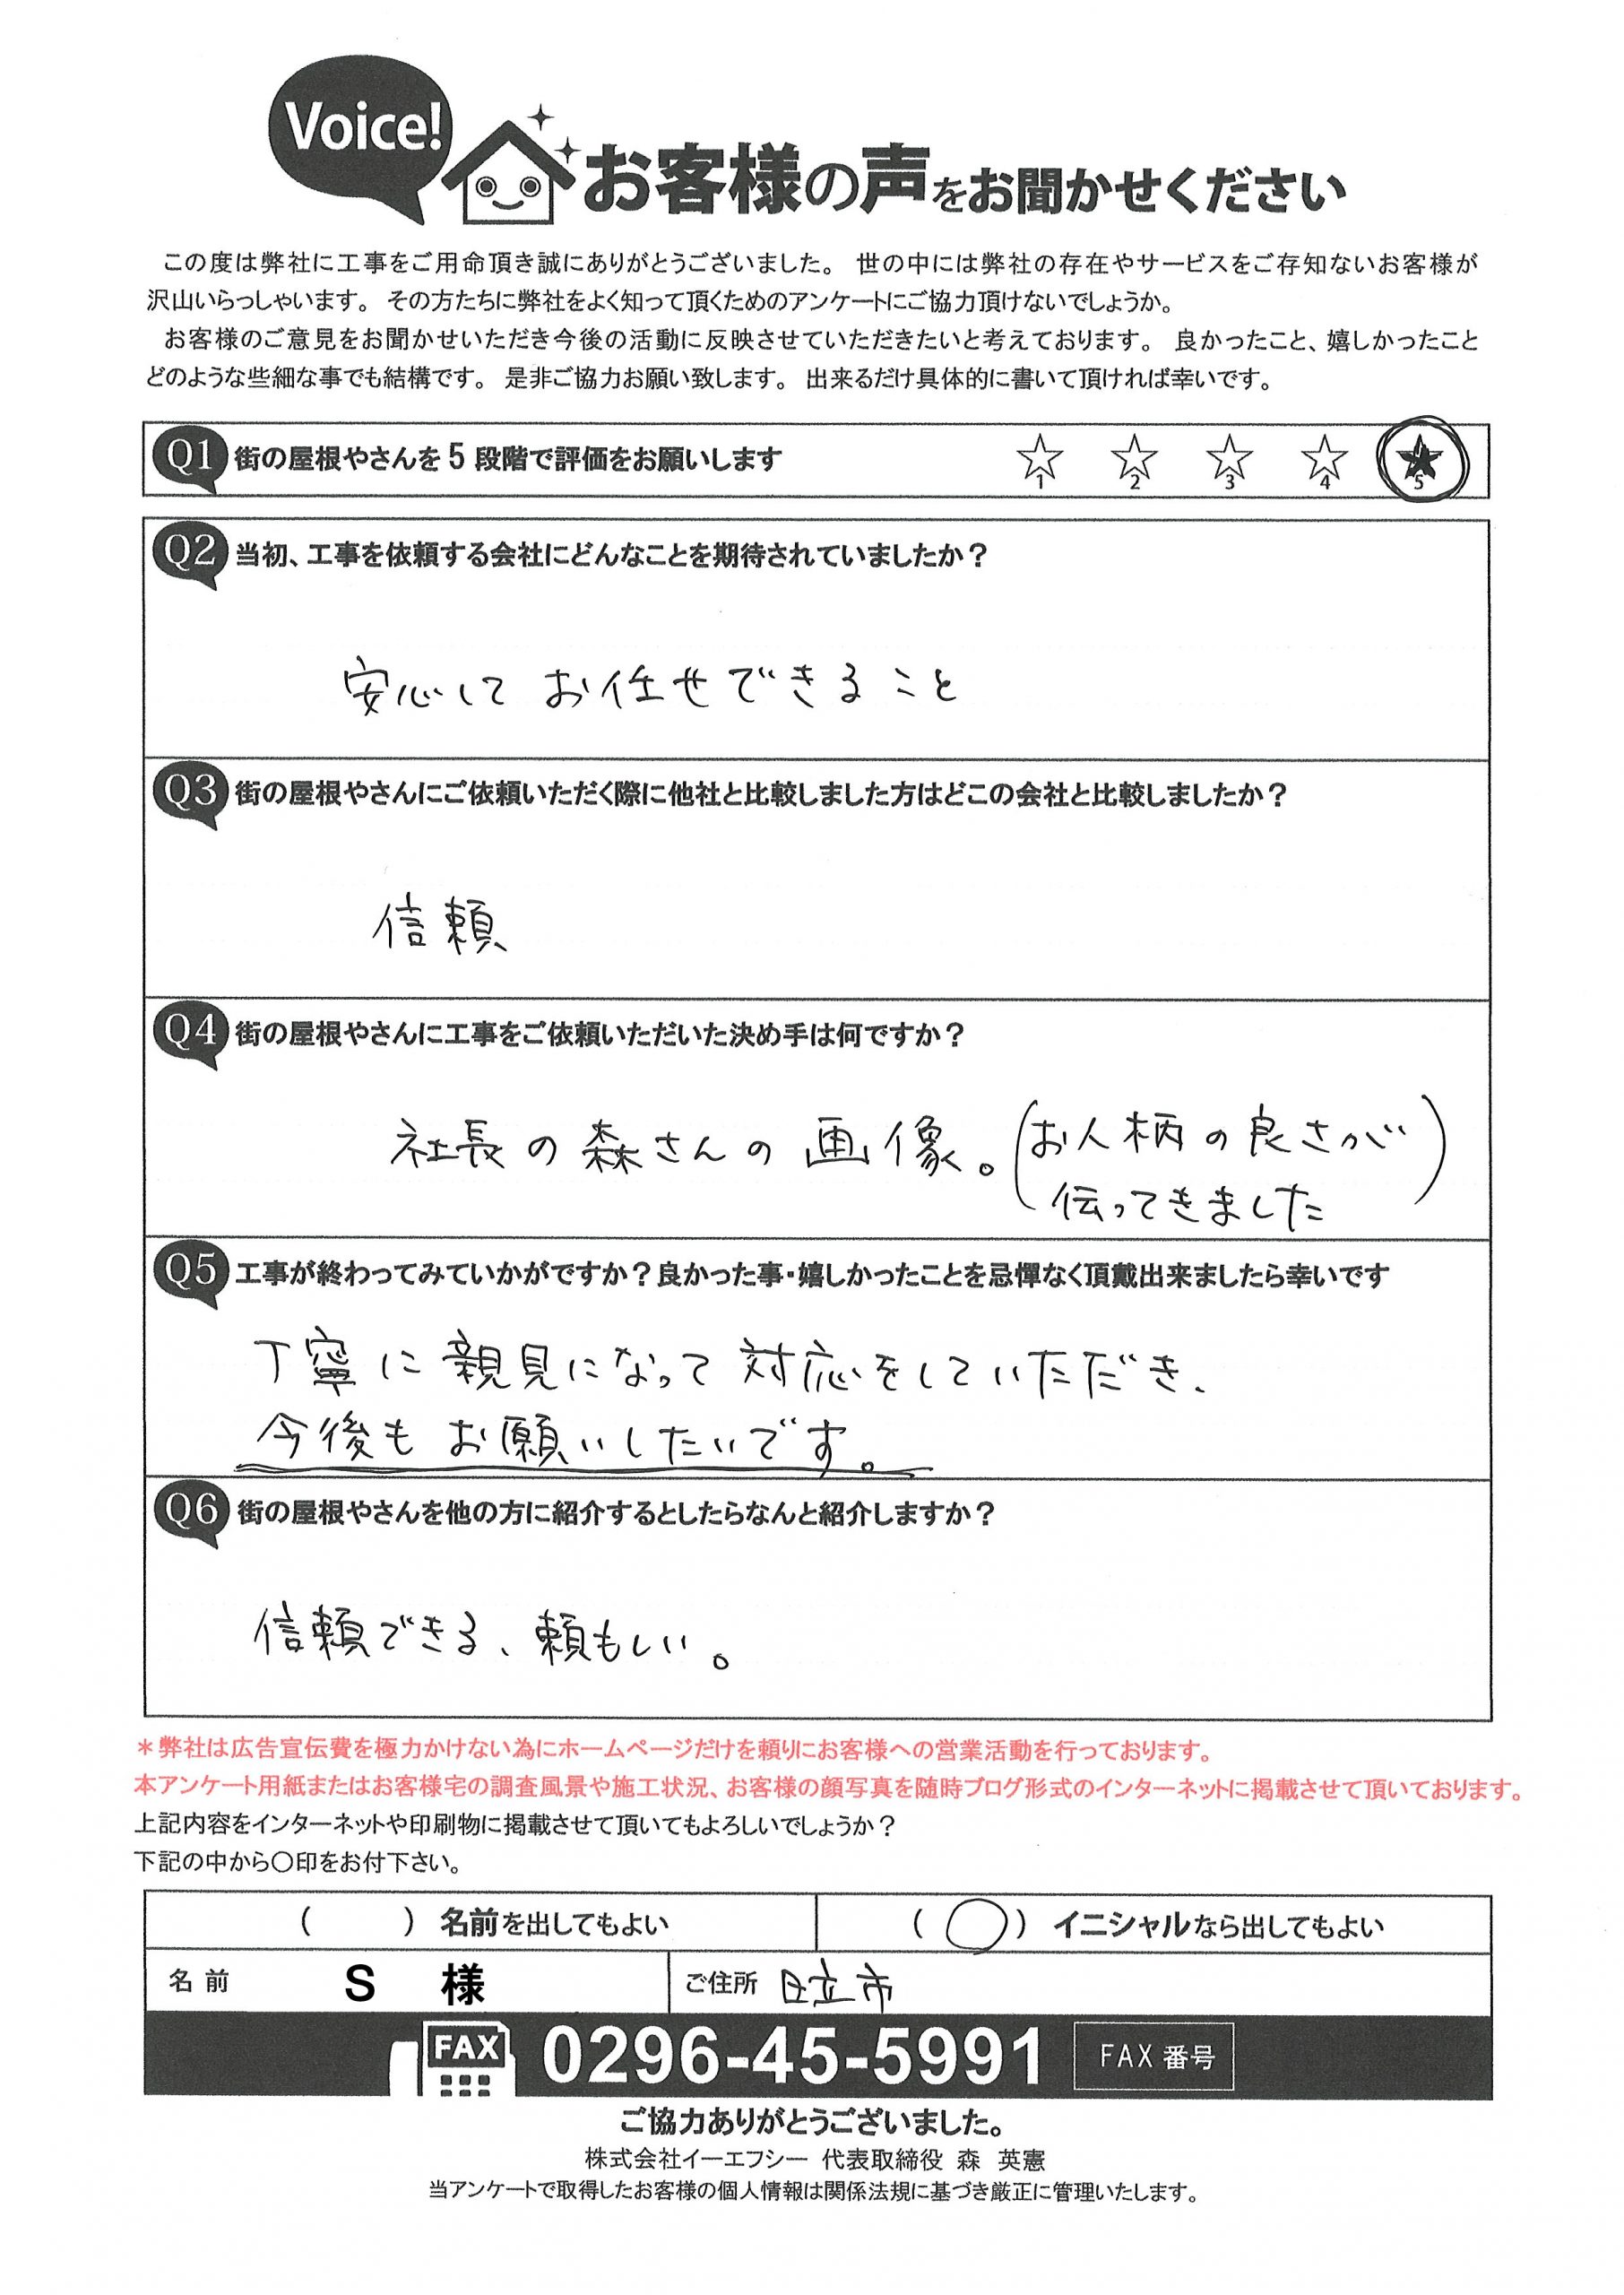 Voice!
お客様の声をお聞かせください
この度は弊社に工事をご用命頂き誠にありがとうございました。 世の中には弊社の存在やサービスをご存知ないお客様が
沢山いらっしゃいます。 その方たちに弊社をよく知って頂くためのアンケートにご協力頂けないでしょうか。
お客様のご意見をお聞かせいただき今後の活動に反映させていただきたいと考えております。 良かったこと、嬉しかったこと
どのような些細な事でも結構です。 是非ご協力お願い致します。 出来るだけ具体的に書いて頂ければ幸いです。
Q1 街の屋根やさんを 5 段階で評価をお願いします ☆1 ☆2 ☆3 ☆4 ★5
Q2 当初、工事を依頼する会社にどんなことを期待されていましたか？
安心して お任せできること
Q3 街の屋根やさんにご依頼いただく際に他社と比較しました方はどこの会社と比較しましたか？
信頼
Q4 街の屋根やさんに工事をご依頼いただいた決め手は何ですか？
社長の森さんの画像。(お人柄の良さが
伝ってきました)
Q5 工事が終わってみていかがですか？良かった事・嬉しかったことを忌憚なく頂戴出来ましたら幸いです
丁寧に親見になって対応をしていただき、
今後もお願いしたいです。
Q6 街の屋根やさんを他の方に紹介するとしたらなんと紹介しますか？
信頼できる、頼もしい。
＊弊社は広告宣伝費を極力かけない為にホームページだけを頼りにお客様への営業活動を行っております。
本アンケート用紙またはお客様宅の調査風景や施工状況、お客様の顔写真を随時ブログ形式のインターネットに掲載させて頂いております。
上記内容をインターネットや印刷物に掲載させて頂いてもよろしいでしょうか？
下記の中から○印をお付下さい。
( ) 名前を出してもよい (○) イニシャルなら出してもよい
名前 S 様 ご住所 日立市
FAX 0296-45-5991 FAX 番号
ご協力ありがとうございました。
株式会社イーエフシー 代表取締役 森 英憲
当アンケートで取得したお客様の個人情報は関係法規に基づき厳正に管理いたします。